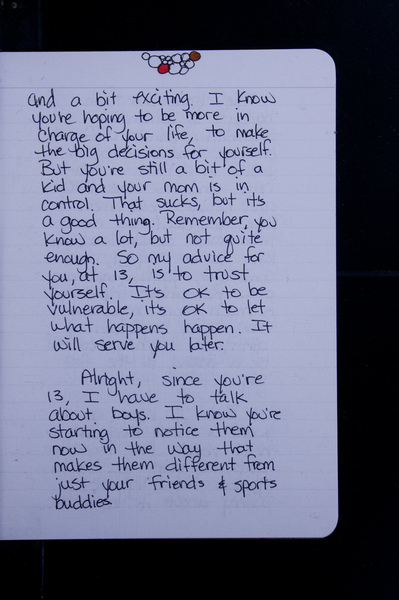 and a bit exciting. I know
you're hoping to be more in
charge of your life, to make
the big decisions for yourself.
But you're still a bit of a
kid and your mom is in
control. That sucks, but it's
a good thing. Remember, you
know a lot, but not quite
enough. So my advice for
you, at 13, is to trust
yourself. It's OK to be
vulnerable, it's OK to let
what happens happen. It
will serve you later.
Alright, since you're
13, I have to talk
about boys. I know you're
starting to notice them
now in the way that
makes them different from
just your friends & sports
buddies